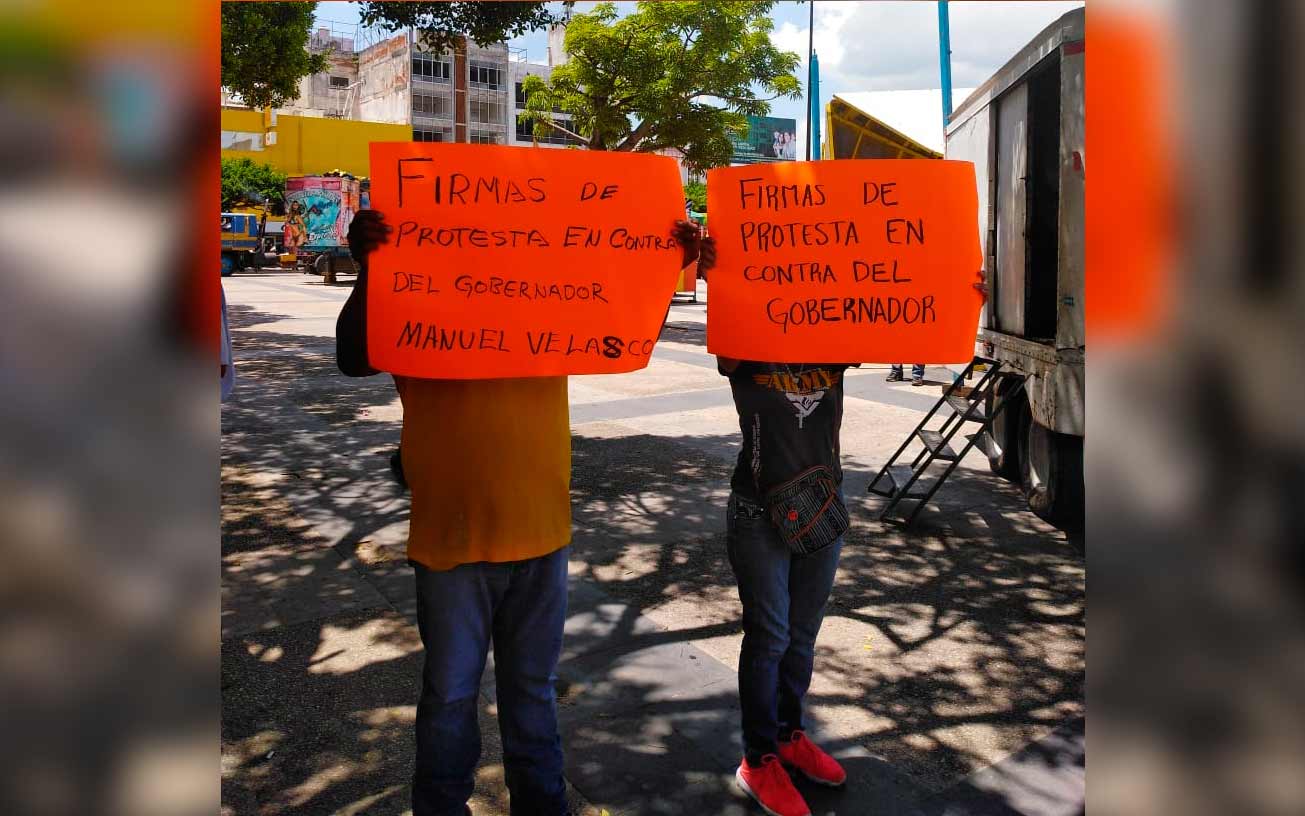 FIRMAS DE
PROTESTA EN CONTRA
DEL GOBERNADOR
MANUEL VELASCO
FIRMAS DE
PROTESTA EN
CONTRA DEL
GOBERNADOR
ARMY